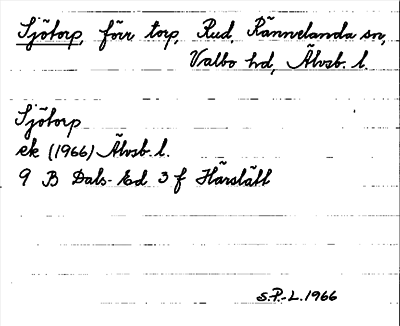 Sjötorp, förr torp, Rud, Rännelanda sn,
Valbo hd, Älvsb. l.
Sjötorp
ek (1966) Älvsb. l.
9 B Dals-Ed 3 f Härslätt
S.P.-L. 1966